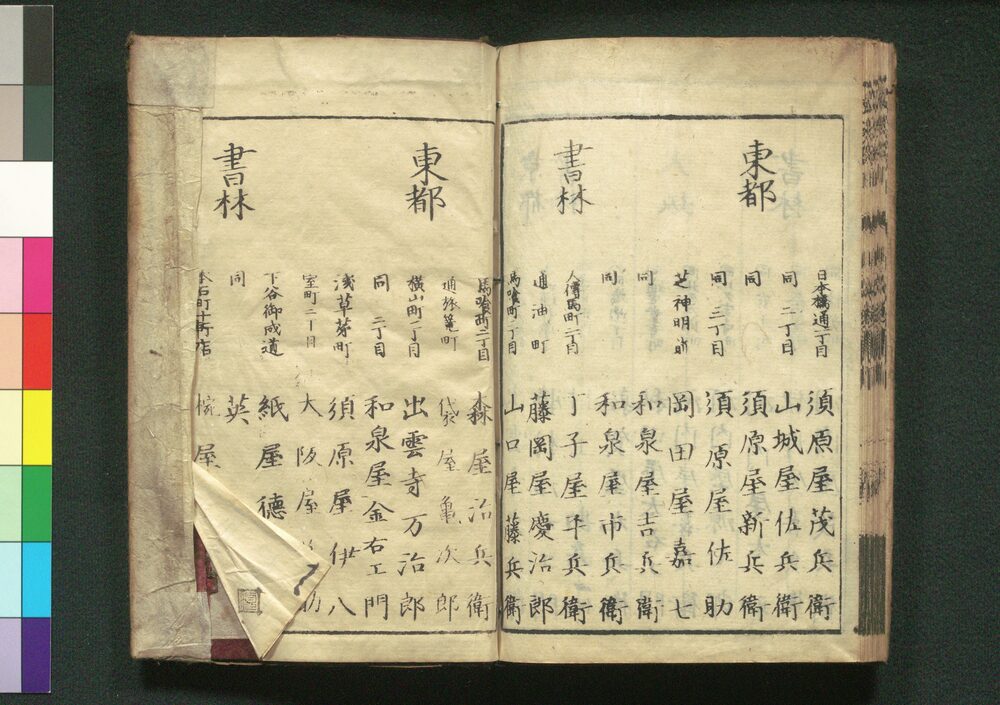 東都
書林
日本橋通一丁目 須原屋茂兵衛
同 二丁目 山城屋佐兵衛
同 須原屋新兵衛
同 三丁目 須原屋佐助
芝神明前 岡田屋嘉七
同 和泉屋吉兵衛
同 和泉屋市兵衛
大傳馬町二丁目 丁子屋平兵衛
通油町 藤岡屋慶治郎
馬喰町二丁目 山口屋藤兵衛
東都
書林
馬喰町二丁目 森屋治兵衛
通旅篭町 袋屋亀次郎
横山町一丁目 出雲寺万治郎
同 二丁目 和泉屋金右エ門
浅草茅町 須原屋伊八
室町二丁目 大阪屋 助
下谷御成道 紙屋徳
同 英
本石町十軒店 屋